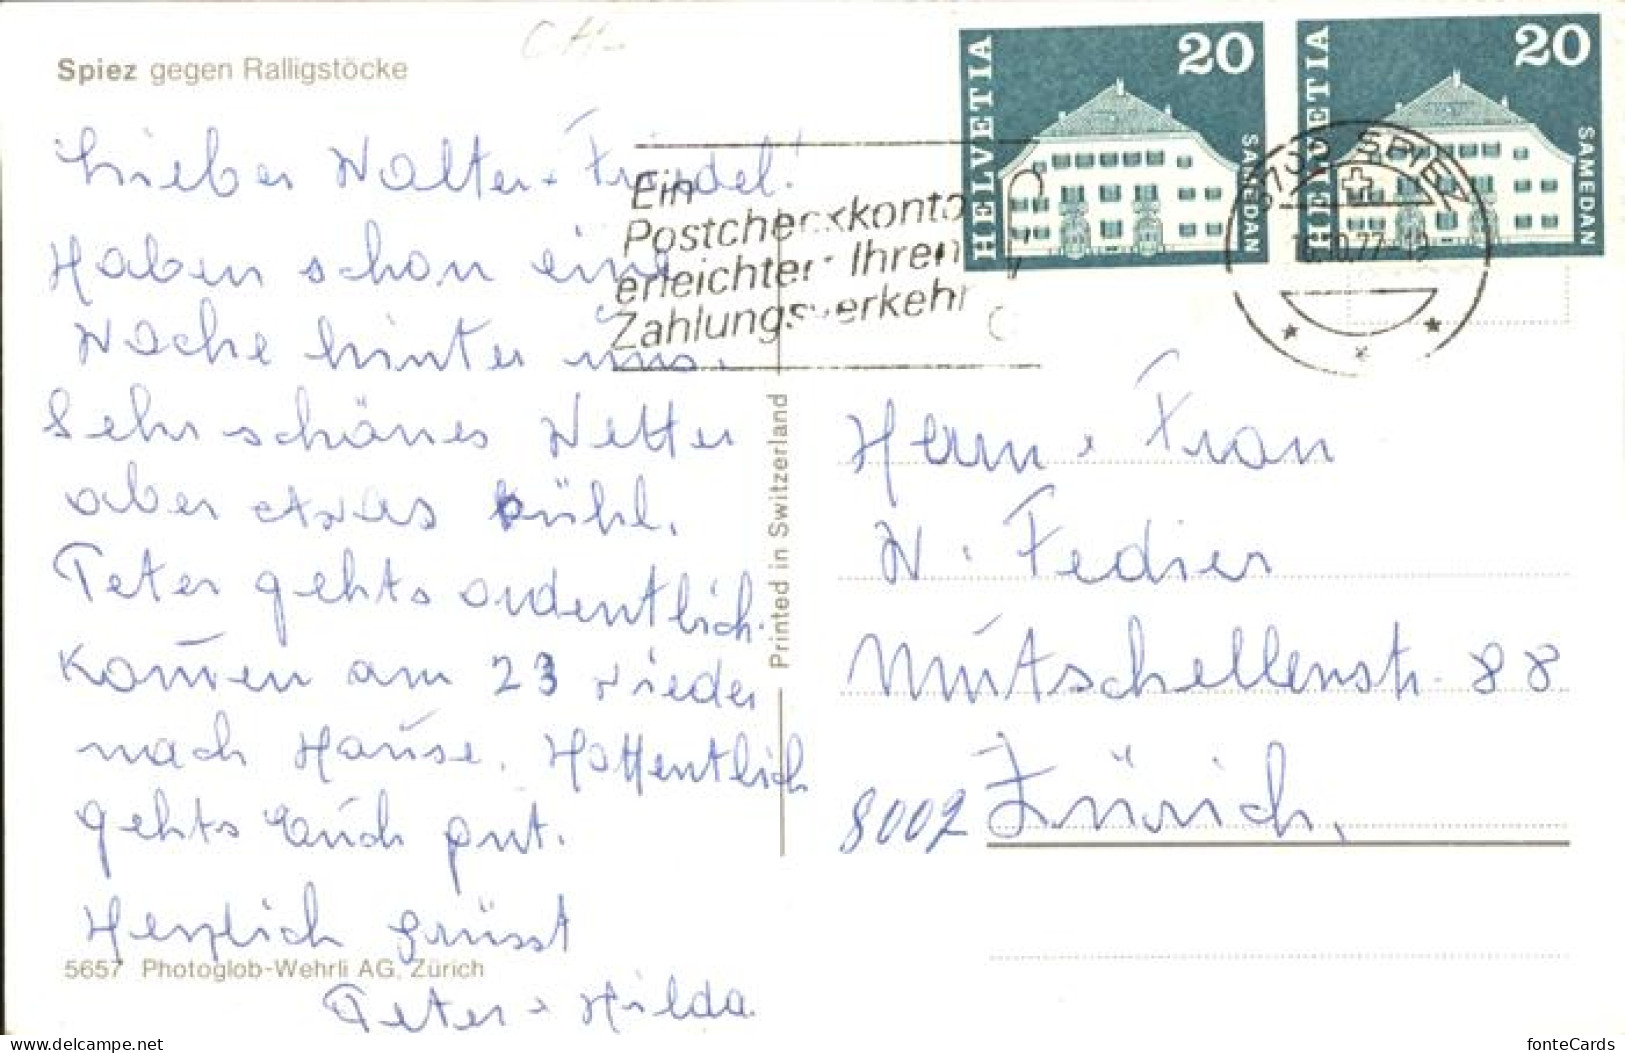 C H.-
Spiez gegen Ralligstöcke
Lieber Walter + Friedel!
Haben schon eine
Woche hinter uns.
Sehr schönes Wetter
aber etwas kühl.
Peter gehts ordentlich.
Kom̄en am 23 wieder
nach Hause. Hoffentlich
gehts Euch gut.
Herzlich grüsst
Peter + Hilda.
5657 Photoglob-Wehrli AG, Zürich
Printed in Switzerland
Ein
Postcheckkonto
erleichtert Ihren
Zahlungsverkehr
HELVETIA 20 SAMEDAN
HELVETIA 20 SAMEDAN
3700 SPIEZ
.10.77-12
Herrn + Frau
W. Fedier
Mutschellenstr. 88
8002 Zürich.
www.delcampe.net
fonteCards